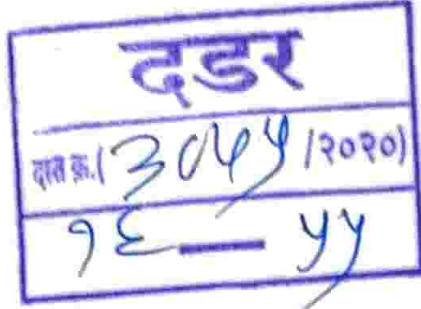 दडर
दस्त क्र.(३०५५/२०२०)
१६ — ५५